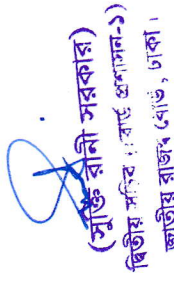 (সুক্তি রানী সরকার)
দ্বিতীয় সচিব (বোর্ড প্রশাসন-১)
জাতীয় রাজস্ব বোর্ড, ঢাকা।